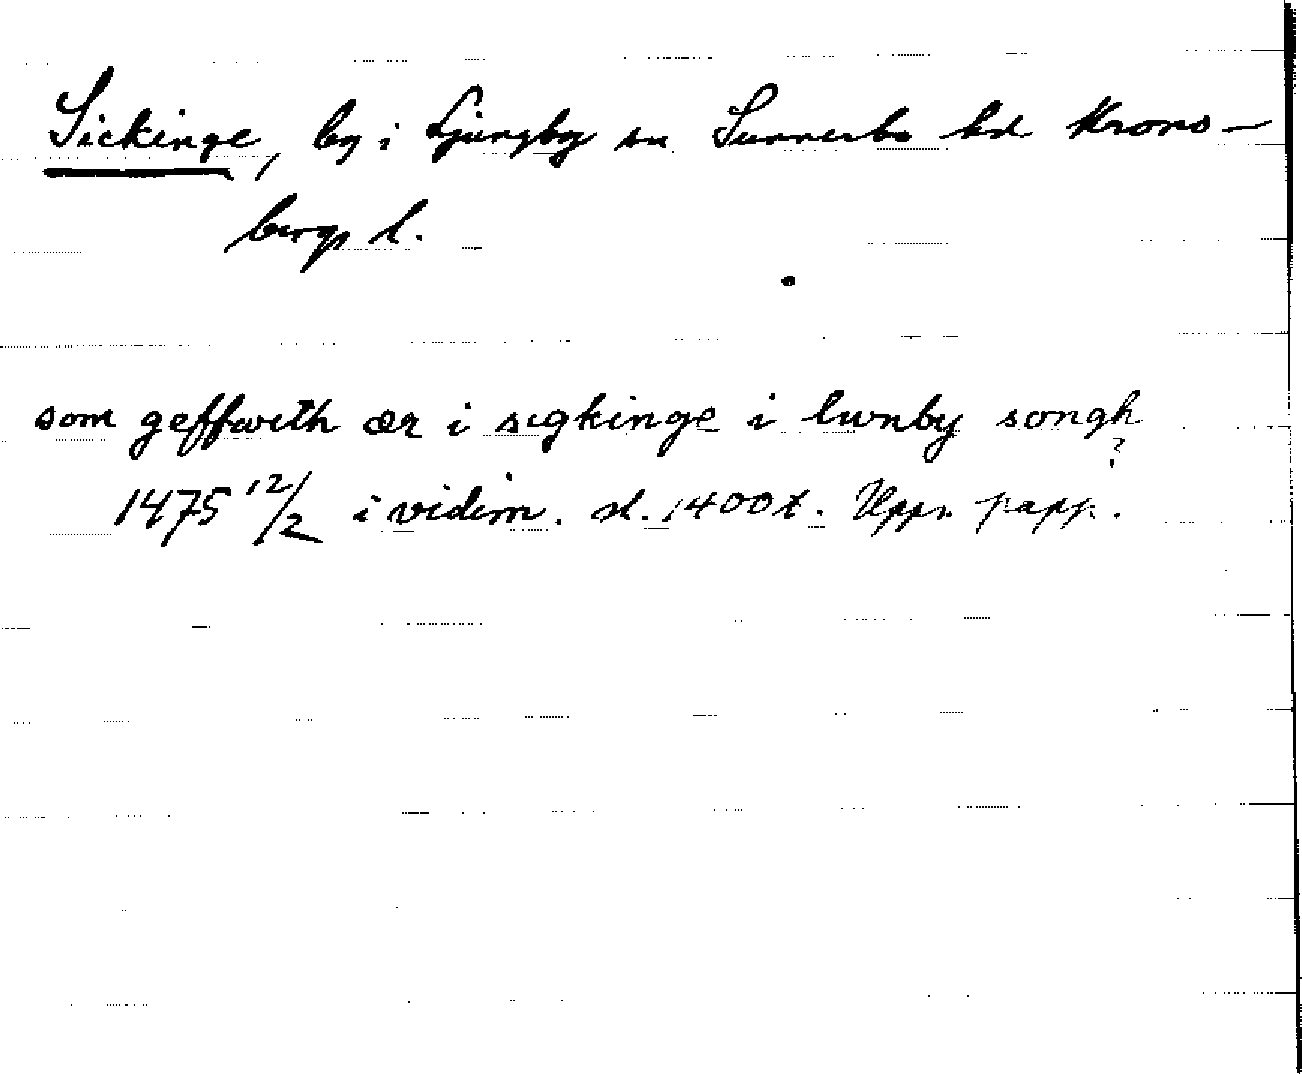 Sickinge, by i Ljungby sn Sunnerbo hd Krono-
bergs l.
som geffwith ær i sigkinge i lwnby songh
?
1475 12/2 i vidim. sl. 1400t. Uppr. papp.